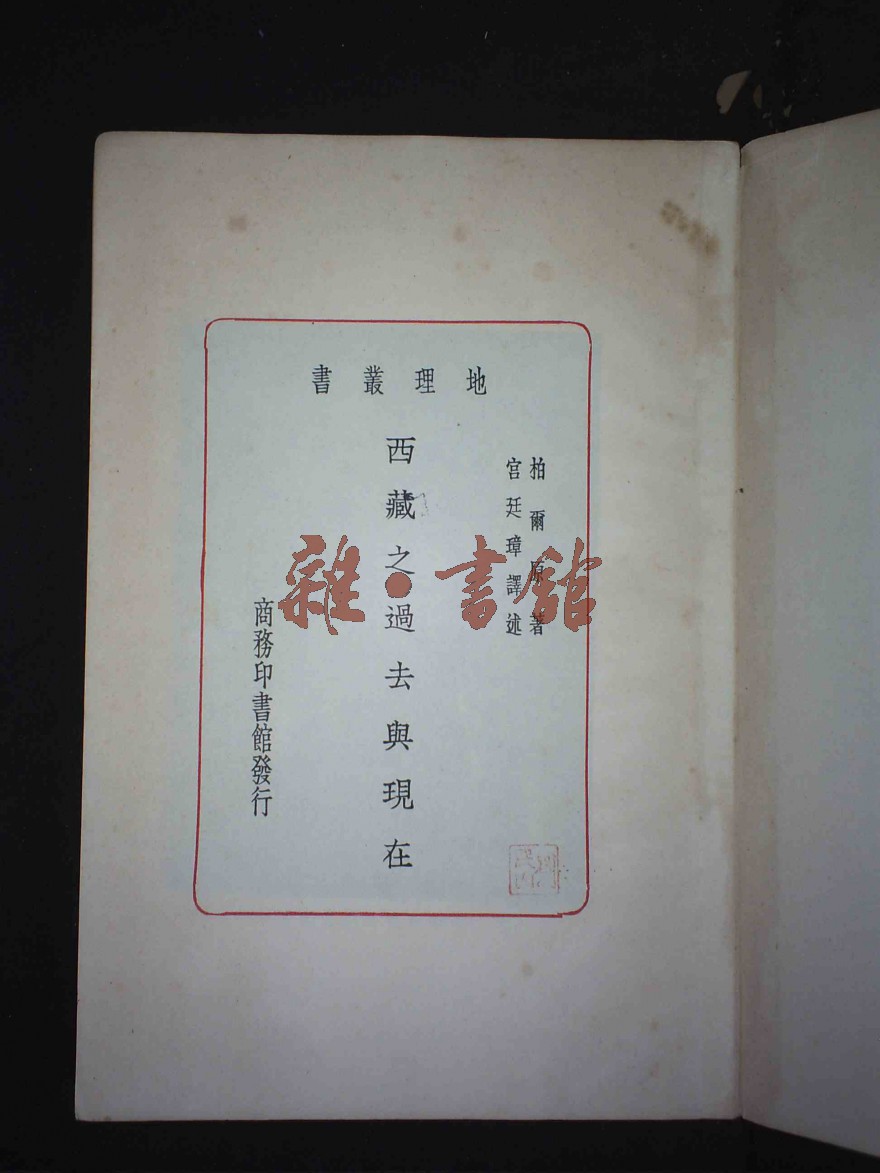 地理叢書
柏爾原著
宮廷璋譯述
西藏之過去與現在
商務印書館發行
雜·書館